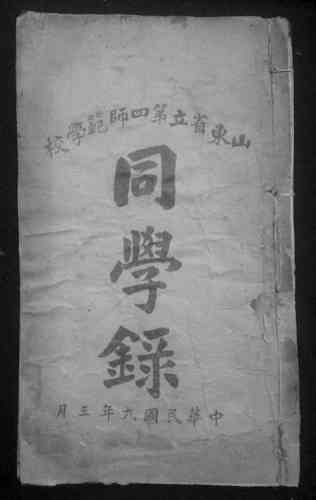 山東省立第四師範學校
同學錄
中華民國六年三月